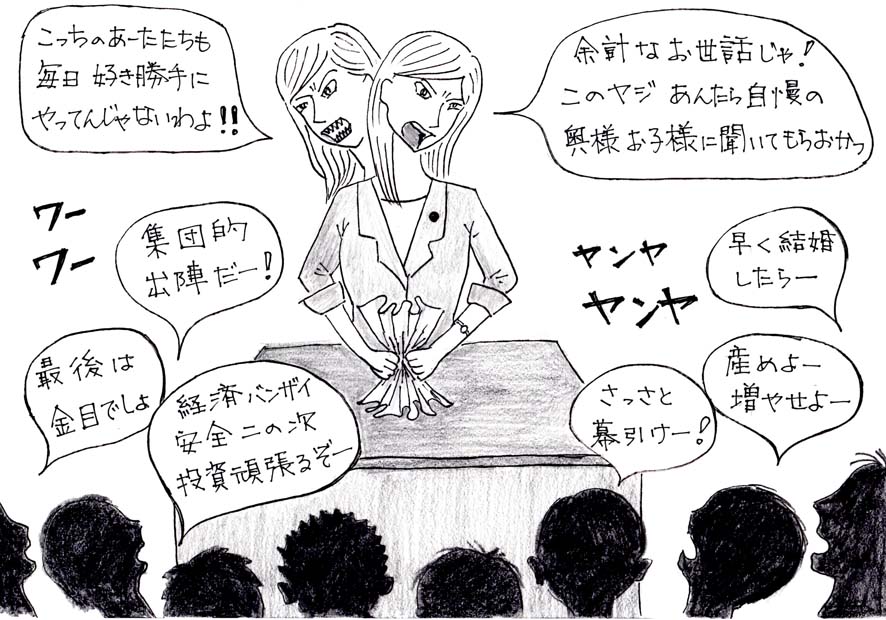 こっちのあーたたちも
毎日好き勝手に
やってんじゃないわよ!!
余計なお世話じゃ!
このヤジ あんたら自慢の
奥様お子様に聞いてもらおかっ
ワー
ワー
集団的
出陣だー!
ヤンヤ
ヤンヤ
早く結婚
したらー
最後は
金目でしょ
経済バンザイ
安全二の次
投資頑張るぞー
さっさと
幕引けー!
産めよー
増やせよー